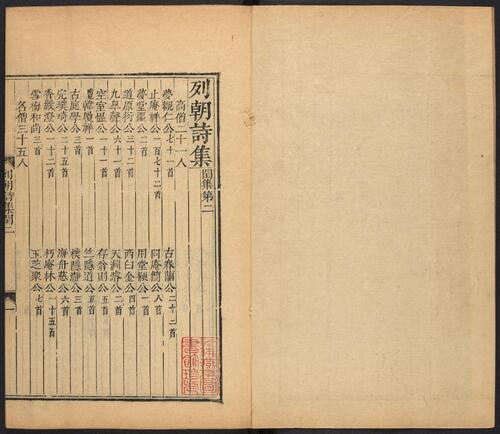 列朝詩集 閏集第二
高僧二十一人
夢觀仁公七十一首 古春蘭公二十二首
止庵祥公一百七十二首 同庵簡公八首
夢堂噩公二首 用堂楩公一首
道原衍公三十二首 西白金公四首
九皋聲公六十一首 天淵濬公二首
空室慍公一十一首 存翁則公五首
一首 竺隱道公五首
古庭學公三首 樸隱瀞公三首
完璞琦公二十五首 海舟慈公六首
香嚴澄公一十二首 朽庵林公一十五首
雪梅和尚三首 玉芝聚公七首
名僧三十五人
列朝詩集閏二 一